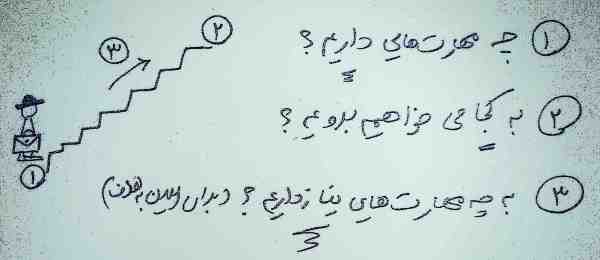 ① چه مهارت‌هایی داریم؟
② به کجا می خواهیم برویم؟
③ به چه مهارت‌هایی نیاز داریم؟ (برای رسیدن به هدف)
③
②
①